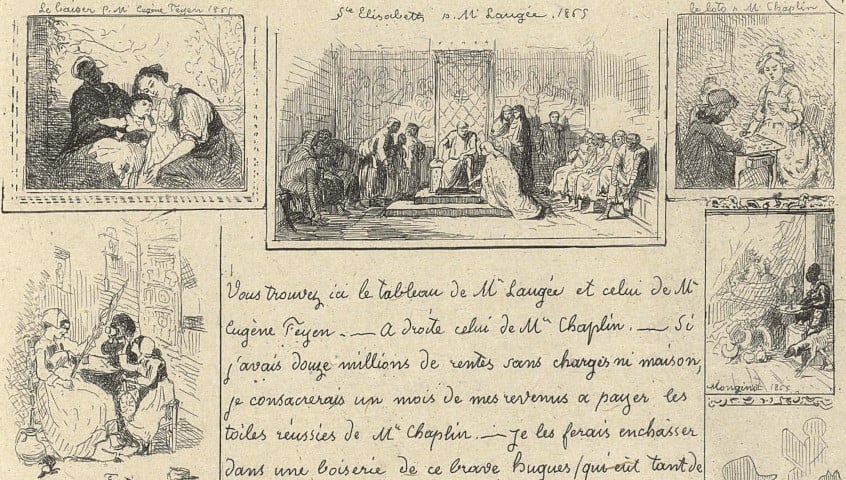 Le baiser p. Mr Eugène Feyen 1865
Ste Elisabeth p. Mr Laugée. 1865
le loto p. Mr Chaplin
Vous trouvez ici le tableau de Mr Laugée et celui de Mr
Eugène Feyen. — A droite celui de Mr Chaplin. — Si
j'avais douze millions de rentes sans charges ni maison,
je consacrerais un mois de mes revenus a payer les
toiles réussies de Mr Chaplin. — Je les ferais enchasser
dans une boiserie de ce brave hugues (qui eut tant de
Monginot 1865